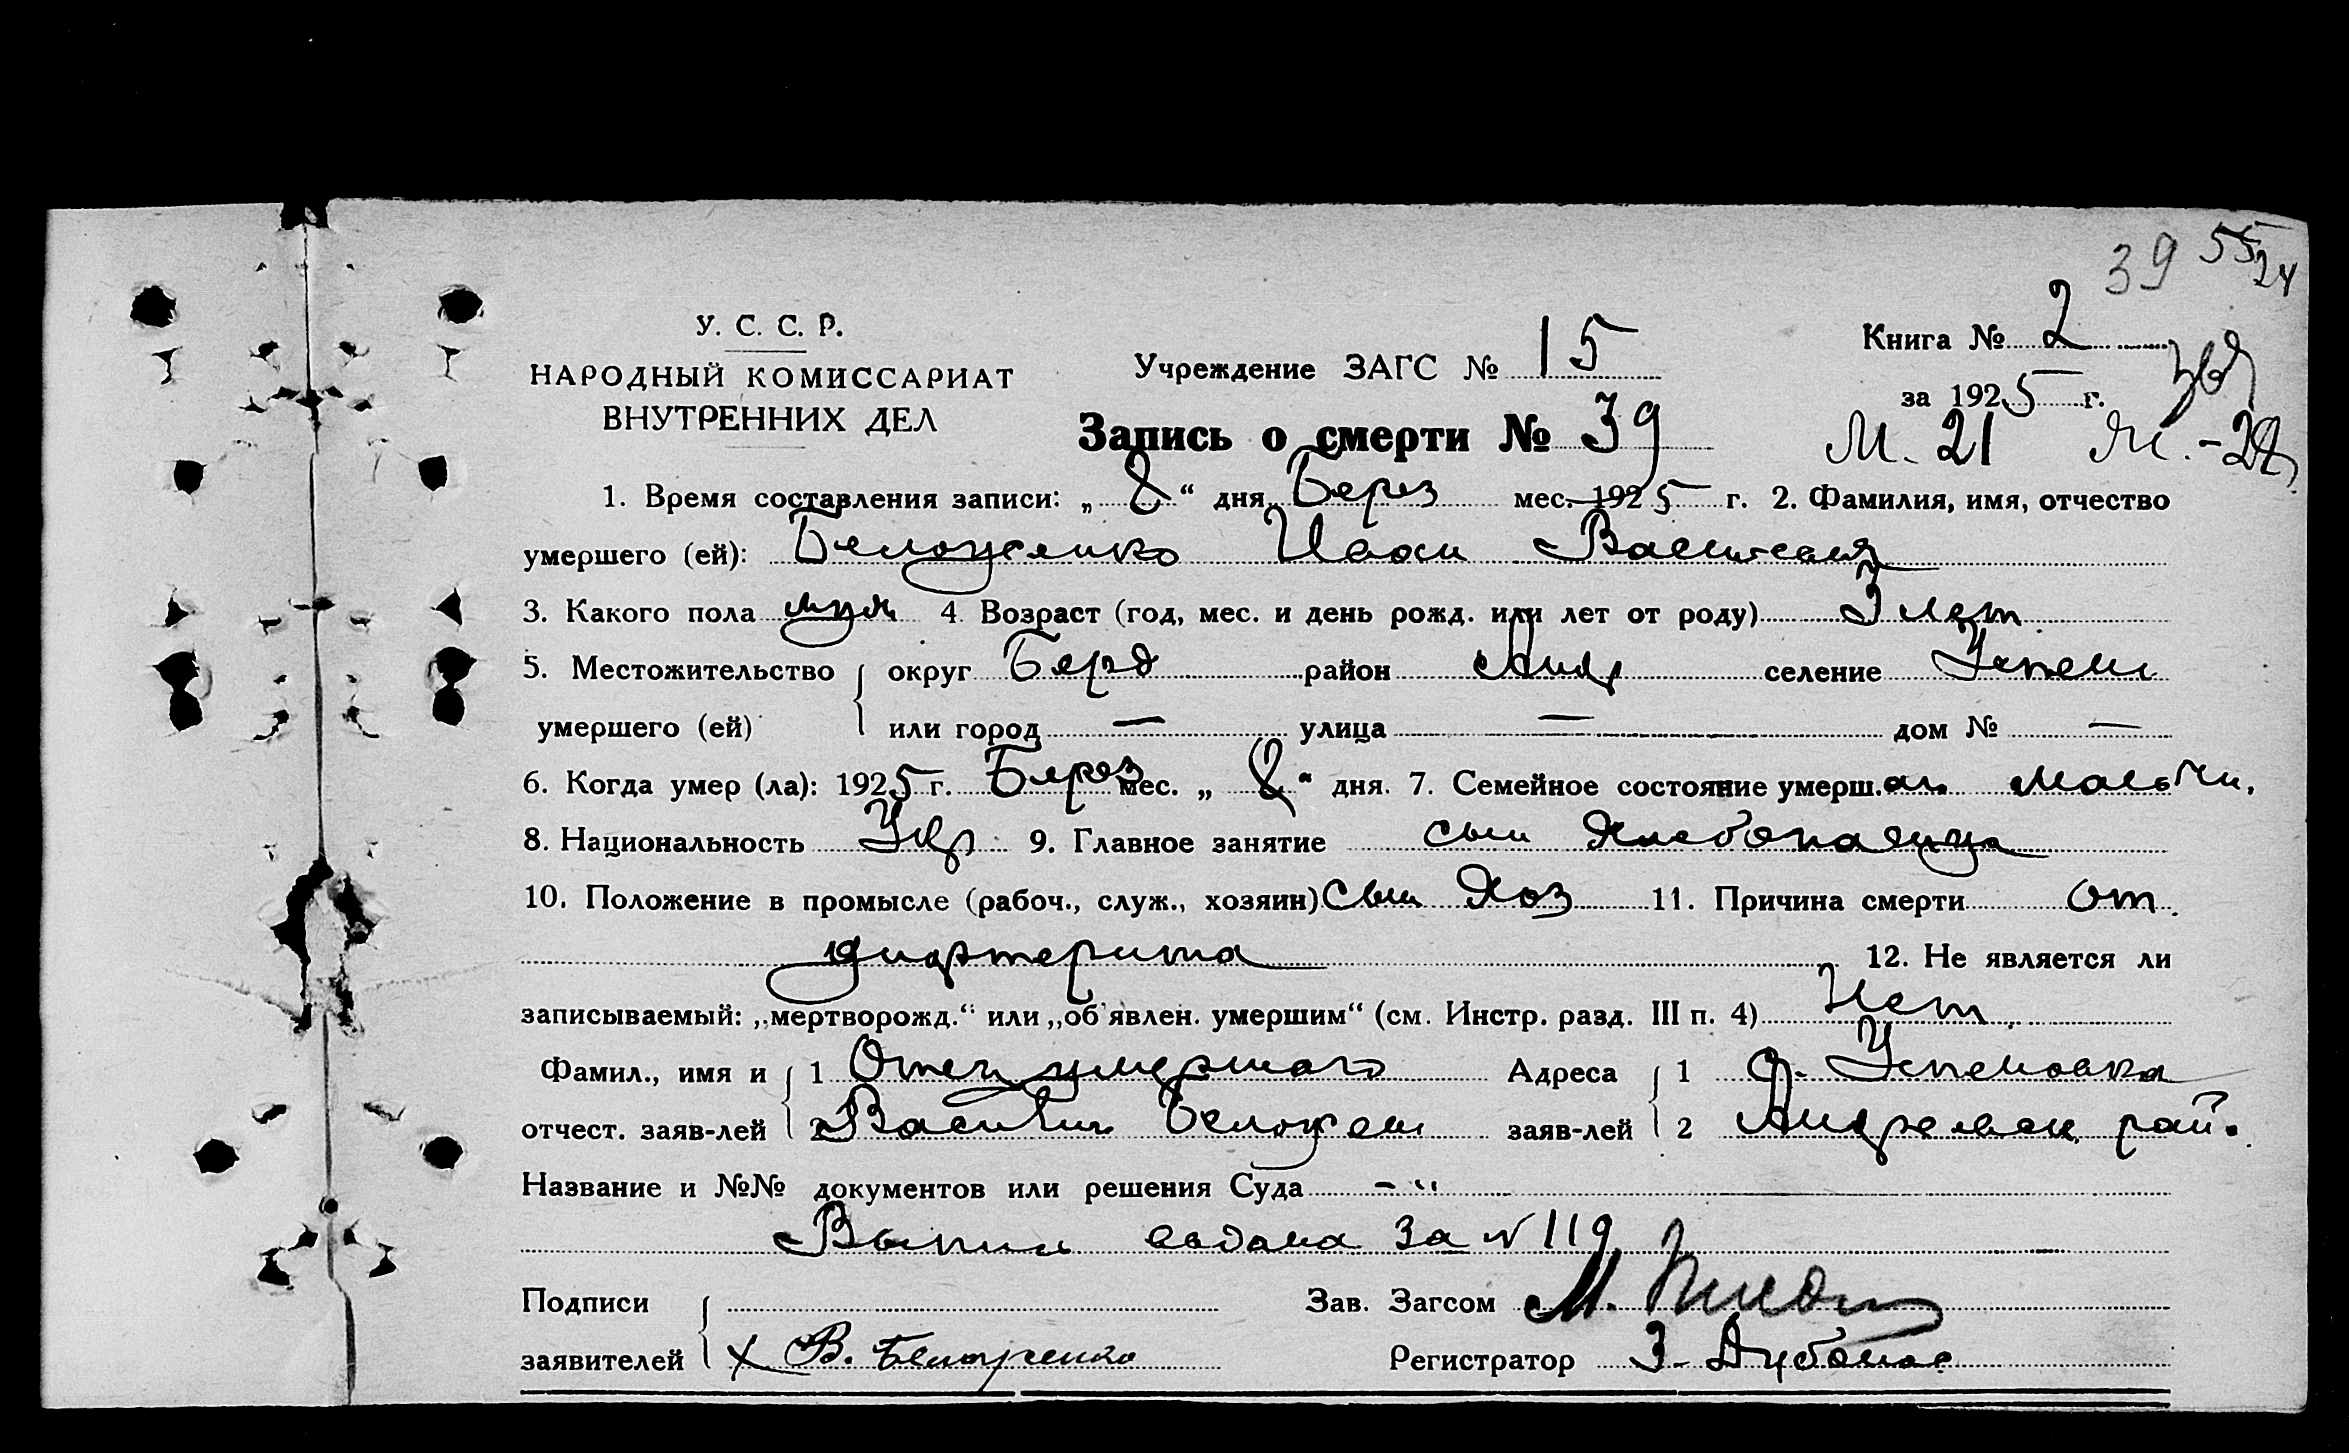 39 55 24
У. С. С. Р.
НАРОДНЫЙ КОМИССАРИАТ
ВНУТРЕННИХ ДЕЛ
Учреждение ЗАГС № 15
Книга № 2
за 1925 г.
Запись о смерти № 39
М. 21
1. Время составления записи: „ 8 “ дня Берез мес. 1925 г. 2. Фамилия, имя, отчество
умершего (ей): Беложенко Иван Васильев
3. Какого пола муж 4. Возраст (год, мес. и день рожд. или лет от роду) 3 лет
5. Местожительство округ Берд район Андр селение Успен
умершего (ей) или город — улица — дом № —
6. Когда умер (ла): 1925 г. Берез мес. „ 8 “ дня. 7. Семейное состояние умерш.
8. Национальность Укр 9. Главное занятие сын Хлебопашца
10. Положение в промысле (рабоч., служ., хозяин) Сын Хоз 11. Причина смерти от
дифтерита 12. Не является ли
записываемый: „мертворожд.“ или „об'явлен. умершим“ (см. Инстр. разд. III п. 4) Нет
Фамил., имя и 1 Отец умершого Адреса 1 с. Успеновка
отчест. заяв-лей 2 Василий Беложен заяв-лей 2 Андреевск рай.
Название и №№ документов или решения Суда - "
Выпис видана за № 119
Подписи Зав. Загсом М.
заявителей X В. Беложенко Регистратор З.